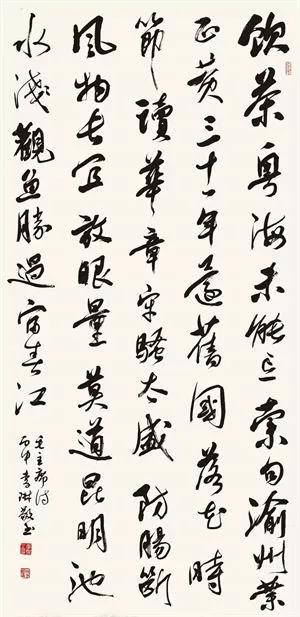 飲茶粤海未能忘索句渝州葉
正黄三十一年還舊國落花時
節讀華章牢騷太盛防腸斷
風物長宜放眼量莫道昆明池
水淺觀魚勝過富春江
毛主席詩
丙申李琳敬书